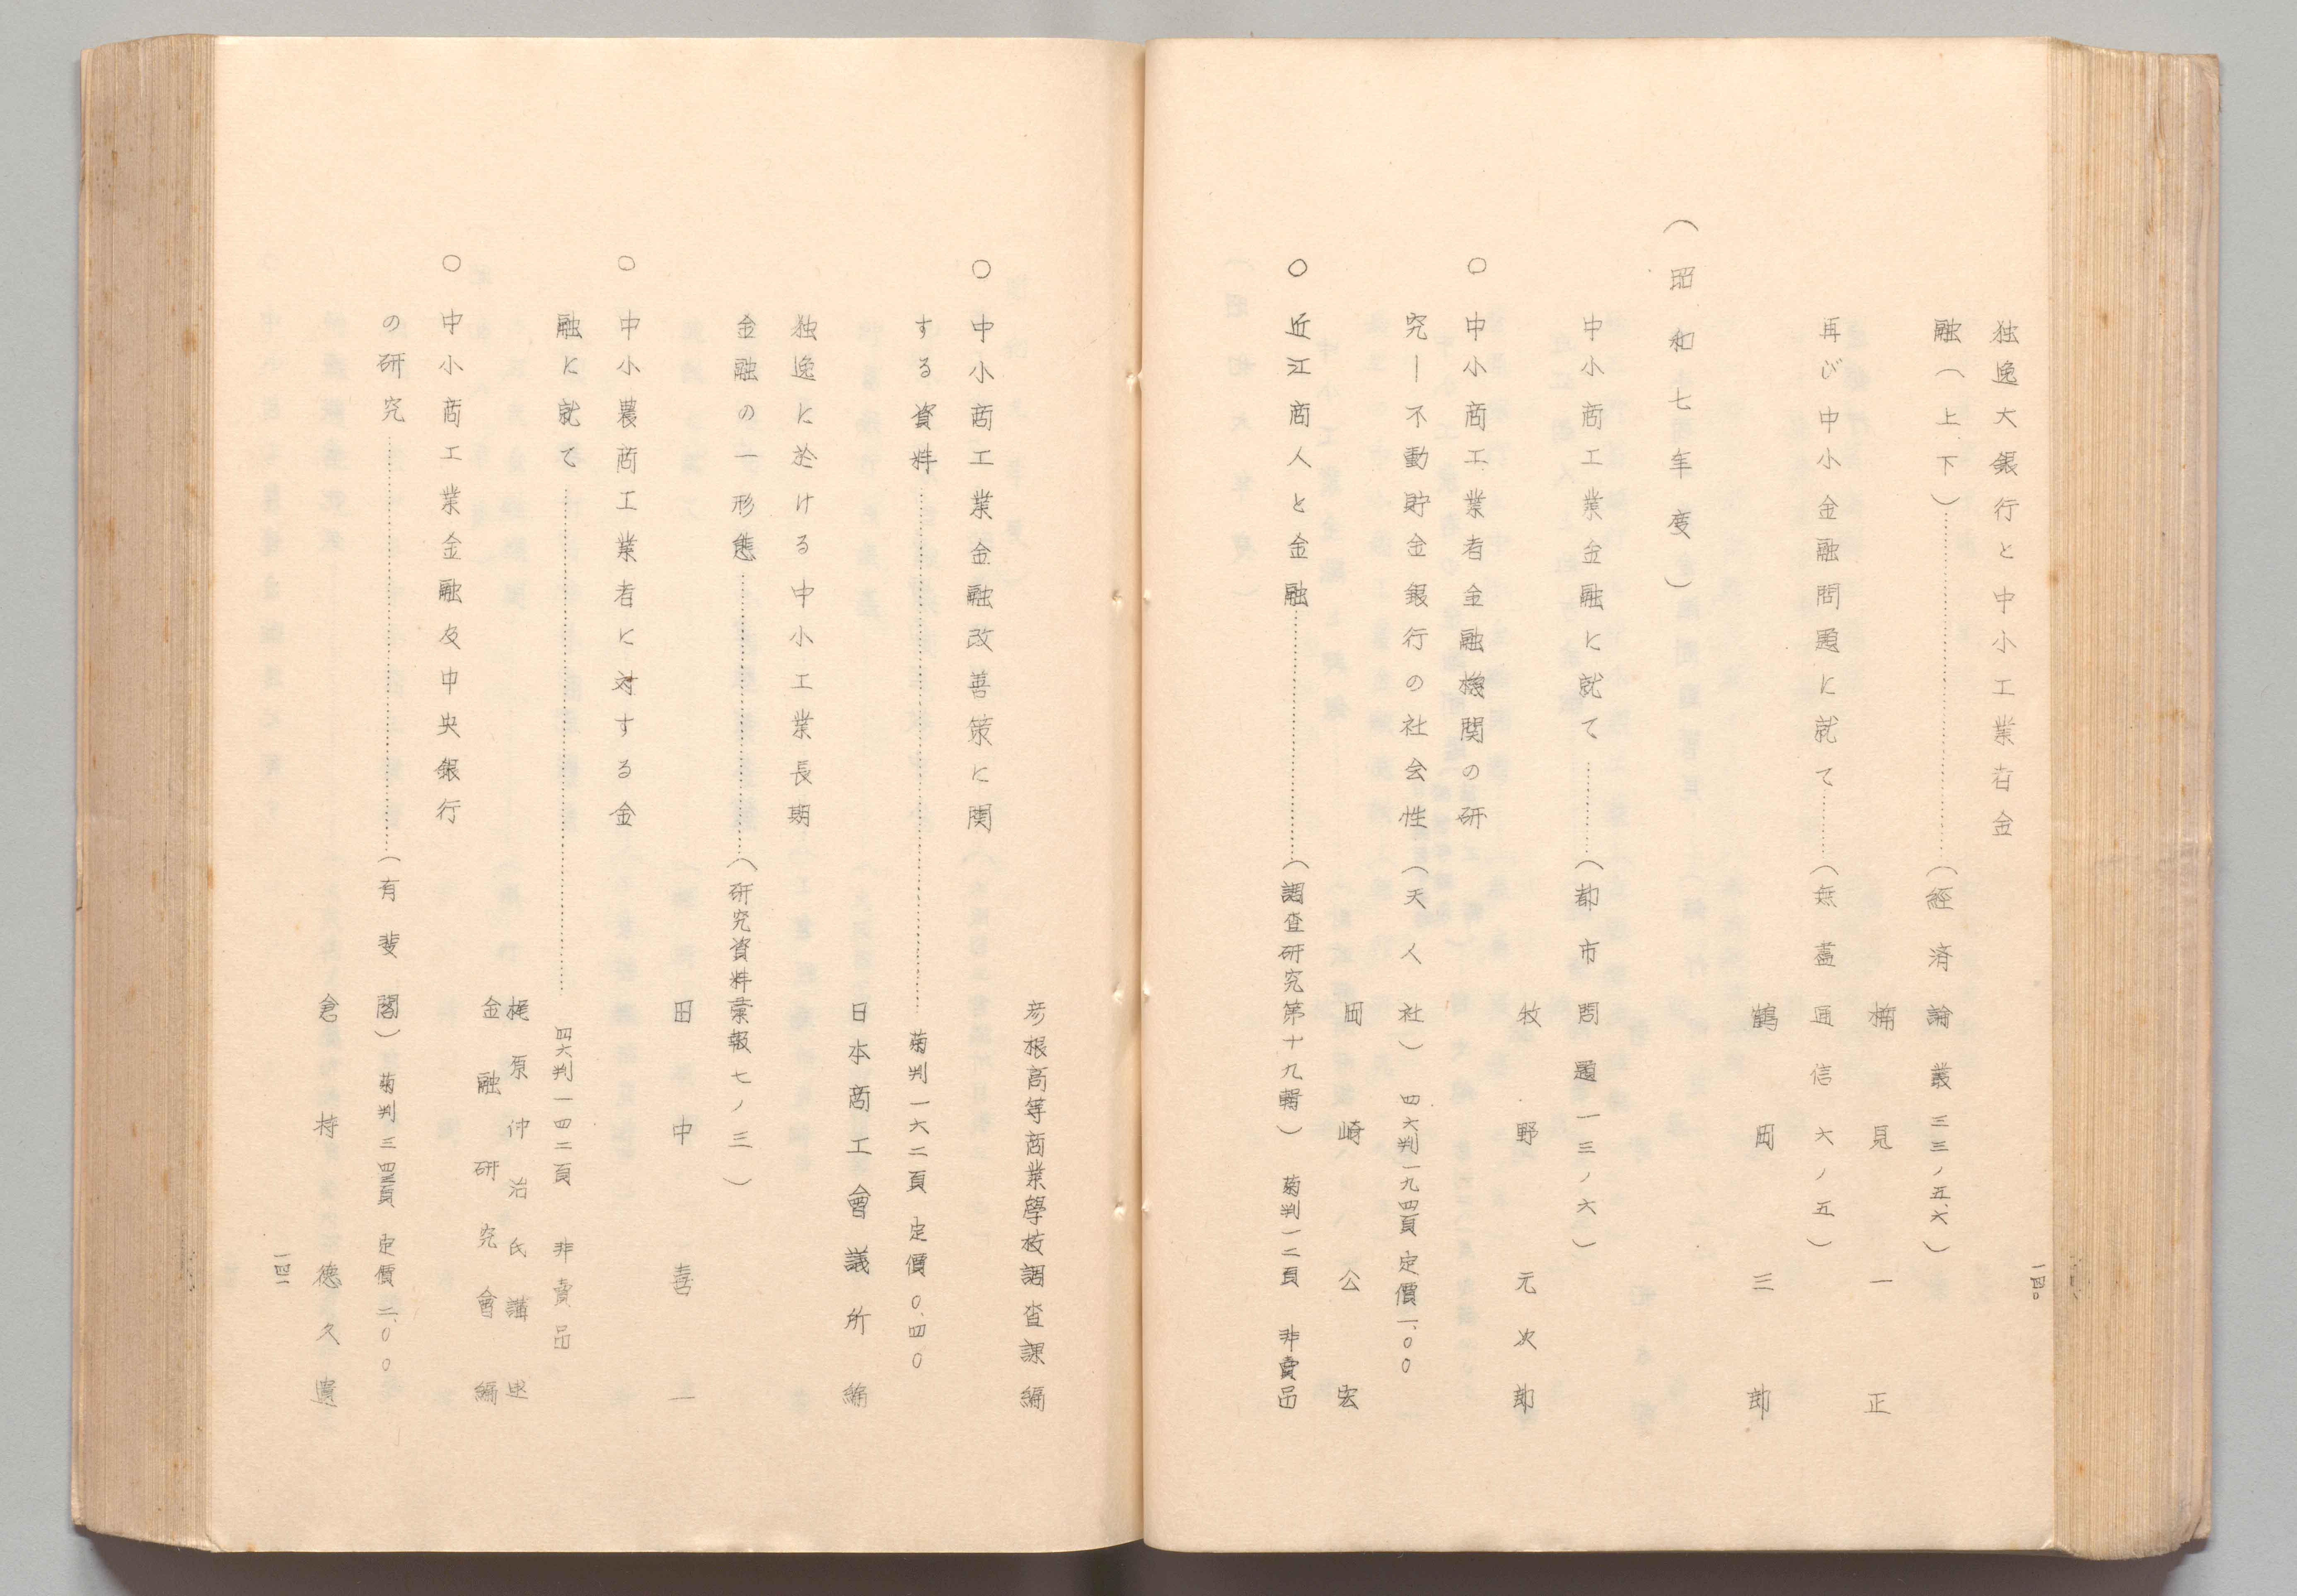 独逸大銀行と中小工業者金
融（上下）……………（経済論叢三三ノ五、六）
楠見一正
再び中小金融問題に就て………（無盡通信六ノ五）
鶴岡三郎
（昭和七年度）
中小商工業金融に就て………（都市問題一三ノ六）
牧野元次郎
○中小商工業者金融機関の研
究―不動貯金銀行の社会性（天人社）四六判一九四頁 定價一、〇〇
岡崎公宏
○近江商人と金融……………（調査研究第十九輯）菊判一二頁 非賣品
一四〇
彦根高等商業學校調査課編
○中小商工業金融改善策に関
する資料……………菊判一六二頁 定價〇.四〇
日本商工會議所編
独逸に於ける中小工業長期
金融の一形態……………（研究資料彙報七ノ三）
田中喜一
○中小農商工業者に対する金
融に就て……………四六判一四二頁 非賣品
梶原仲治氏講述
金融研究會編
○中小商工業金融及中央銀行
の研究……………（有斐閣）菊判三四三頁 定價二、〇〇
倉持徳久遺
一四一